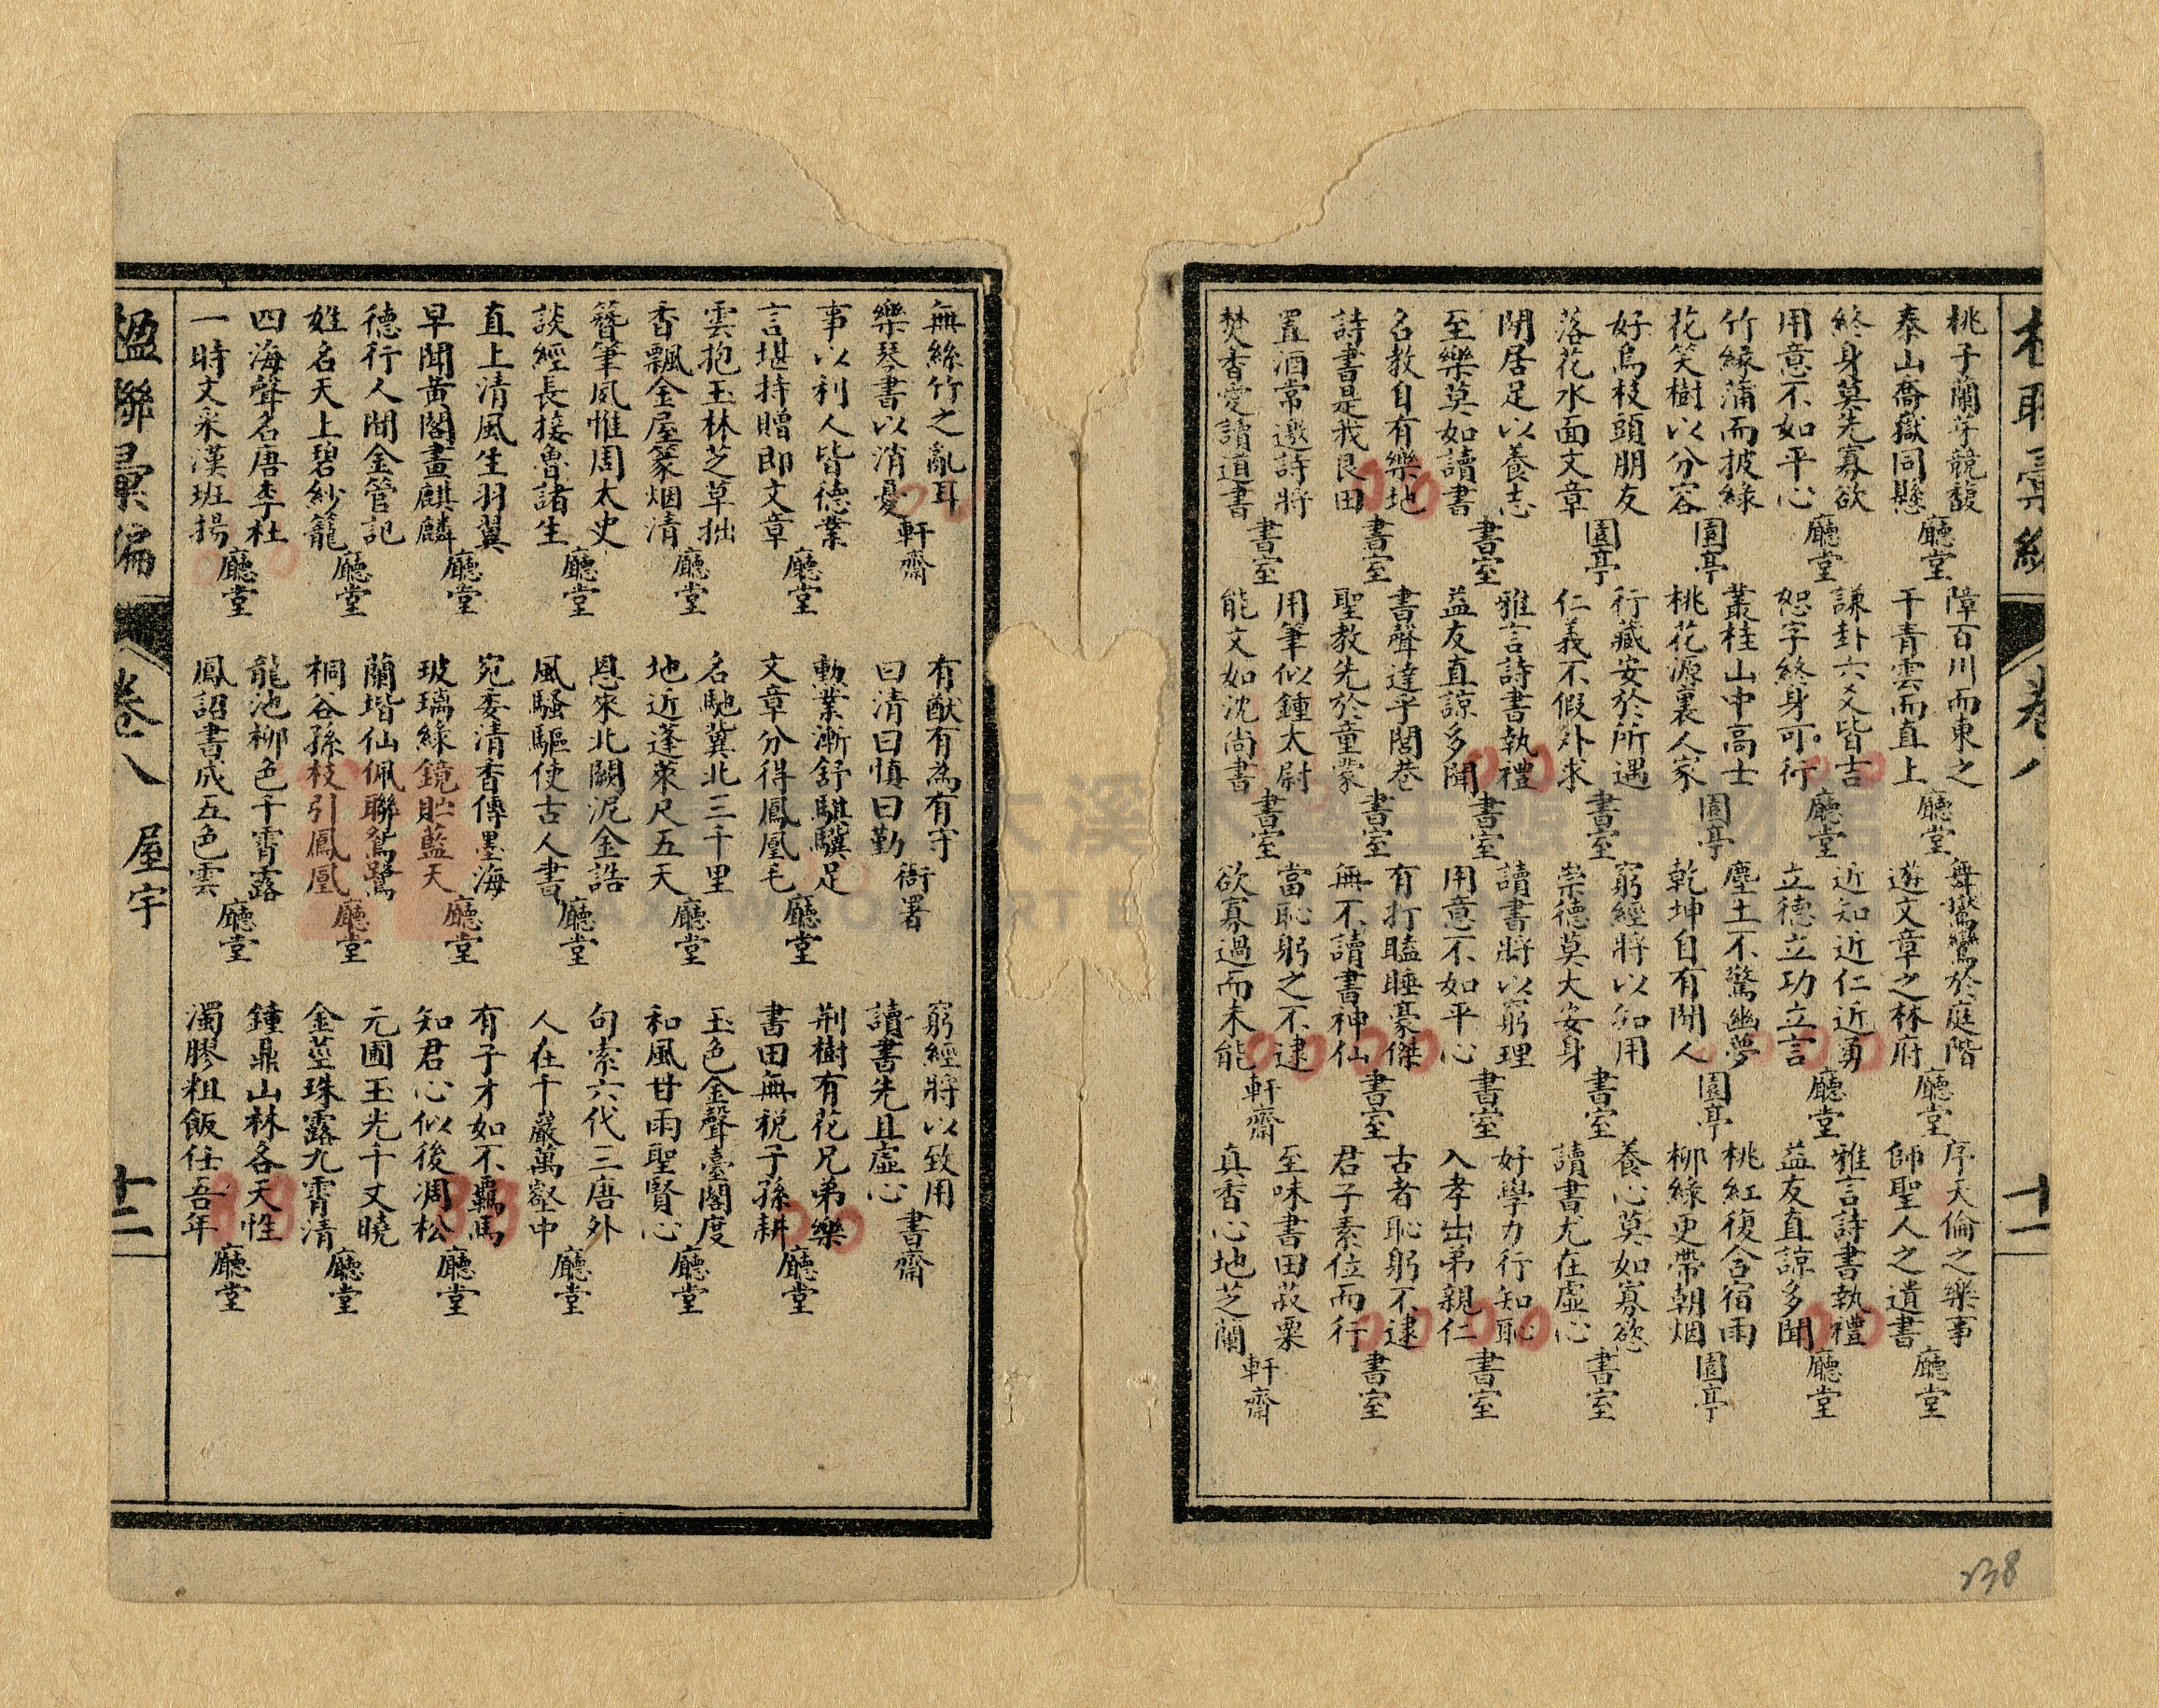 桃子蘭芽競馥
泰山喬嶽同懸
廳堂
終身莫先寡欲
用意不如平心
廳堂
竹緣蒲而披綠
花笑樹以分容
園亭
好鳥枝頭朋友
落花水面文章
園亭
閒居足以養志
至樂莫如讀書
書室
名教自有樂地
詩書是我良田
書室
置酒常邀詩將
焚香愛讀道書
書室
障百川而東之
干青雲而直上
廳堂
謙卦六爻皆吉
恕字終身可行
廳堂
叢桂山中高士
桃花源裏人家
園亭
行藏安於所遇
仁義不假外求
書室
雅言詩書執禮
益友直諒多聞
書室
書聲達乎閭巷
聖教先於童蒙
書室
用筆似鍾太尉
能文如沈尚書
書室
舞鸑鸞於庭階
遊文章之林府
廳堂
近知近仁近勇
立德立功立言
廳堂
塵土不驚幽夢
乾坤自有閒人
園亭
窮經將以知用
崇德莫大安身
書室
讀書將以窮理
用意不如平心
書室
有打瞌睡豪傑
無不讀書神仙
書室
當恥躬之不逮
欲寡過而未能
軒齋
序天倫之樂事
師聖人之遺書
廳堂
雅言詩書執禮
益友直諒多聞
廳堂
桃紅復含宿雨
柳綠更帶朝烟
園亭
養心莫如寡慾
讀書尤在虛心
書室
好學力行知恥
入孝出弟親仁
書室
古者恥躬不逮
君子素位而行
書室
至味書田菽粟
真香心地芝蘭
軒齋
卷八
十一
138
無絲竹之亂耳
樂琴書以消憂
軒齋
事以利人皆德業
言堪持贈即文章
廳堂
雲抱玉林芝草拙
香飄金屋篆烟清
廳堂
簪筆夙惟周太史
談經長接魯諸生
廳堂
直上清風生羽翼
早聞黃閣畫麒麟
廳堂
德行人間金管記
姓名天上碧紗籠
廳堂
四海聲名唐李杜
一時文采漢班揚
廳堂
有猷有為有守
曰清曰慎曰勤
衙署
勳業漸舒騏驥足
文章分得鳳凰毛
廳堂
名馳冀北三千里
地近蓬萊尺五天
廳堂
恩來北闕泥金誥
風騷驅使古人書
廳堂
宛委清香傳墨海
玻璃綠鏡貯藍天
廳堂
蘭堦仙佩聯鴛鷺
桐谷孫枝引鳳凰
廳堂
龍池柳色千霄露
鳳詔書成五色雲
廳堂
窮經將以致用
讀書先且虛心
書齋
荆樹有花兄弟樂
書田無稅子孫耕
廳堂
玉色金聲臺閣度
和風甘雨聖賢心
廳堂
句索六代三唐外
人在千巖萬壑中
廳堂
有子才如不羈馬
知君心似後凋松
廳堂
元圃玉光千丈曉
金莖珠露九霄清
廳堂
鍾鼎山林各天性
濁膠粗飯任吾年
廳堂
楹聯彙編
卷八
屋宇
十二